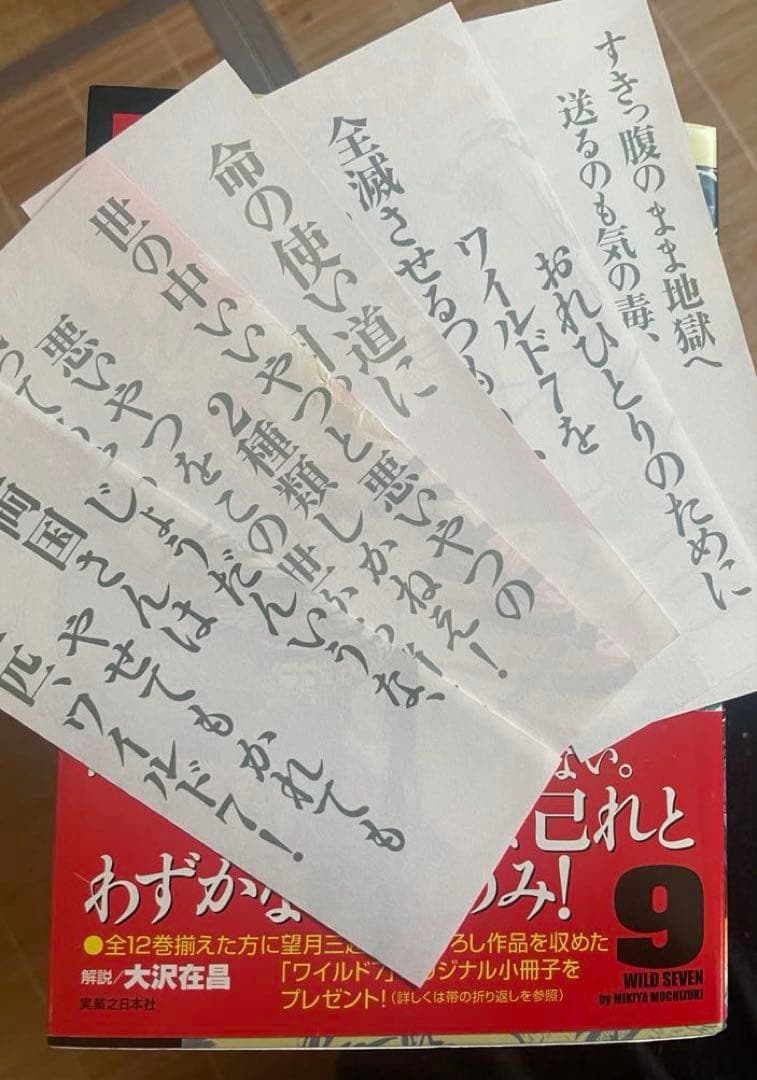 すきっ腹のまま地獄へ
送るのも気の毒、
おれひとりのために
ワイルド7を
全滅させるつも
命の使い道に
世の中いいやつと悪いやつの
2種類しかねえ!
悪いやつをこの世
じょうだんいうな、
両国さんは
やせてもかれても
匹、ワイルド7!
ない。
己れと
わずかな
み!
●全12巻揃えた方に望月三
ろし作品を収めた
「ワイルド7」
ジナル小冊子を
プレゼント!(詳しくは帯の折り返しを参照)
解説/大沢在昌
実業之日本社
9
WILD SEVEN
by MIKIYA MOCHIZUKI